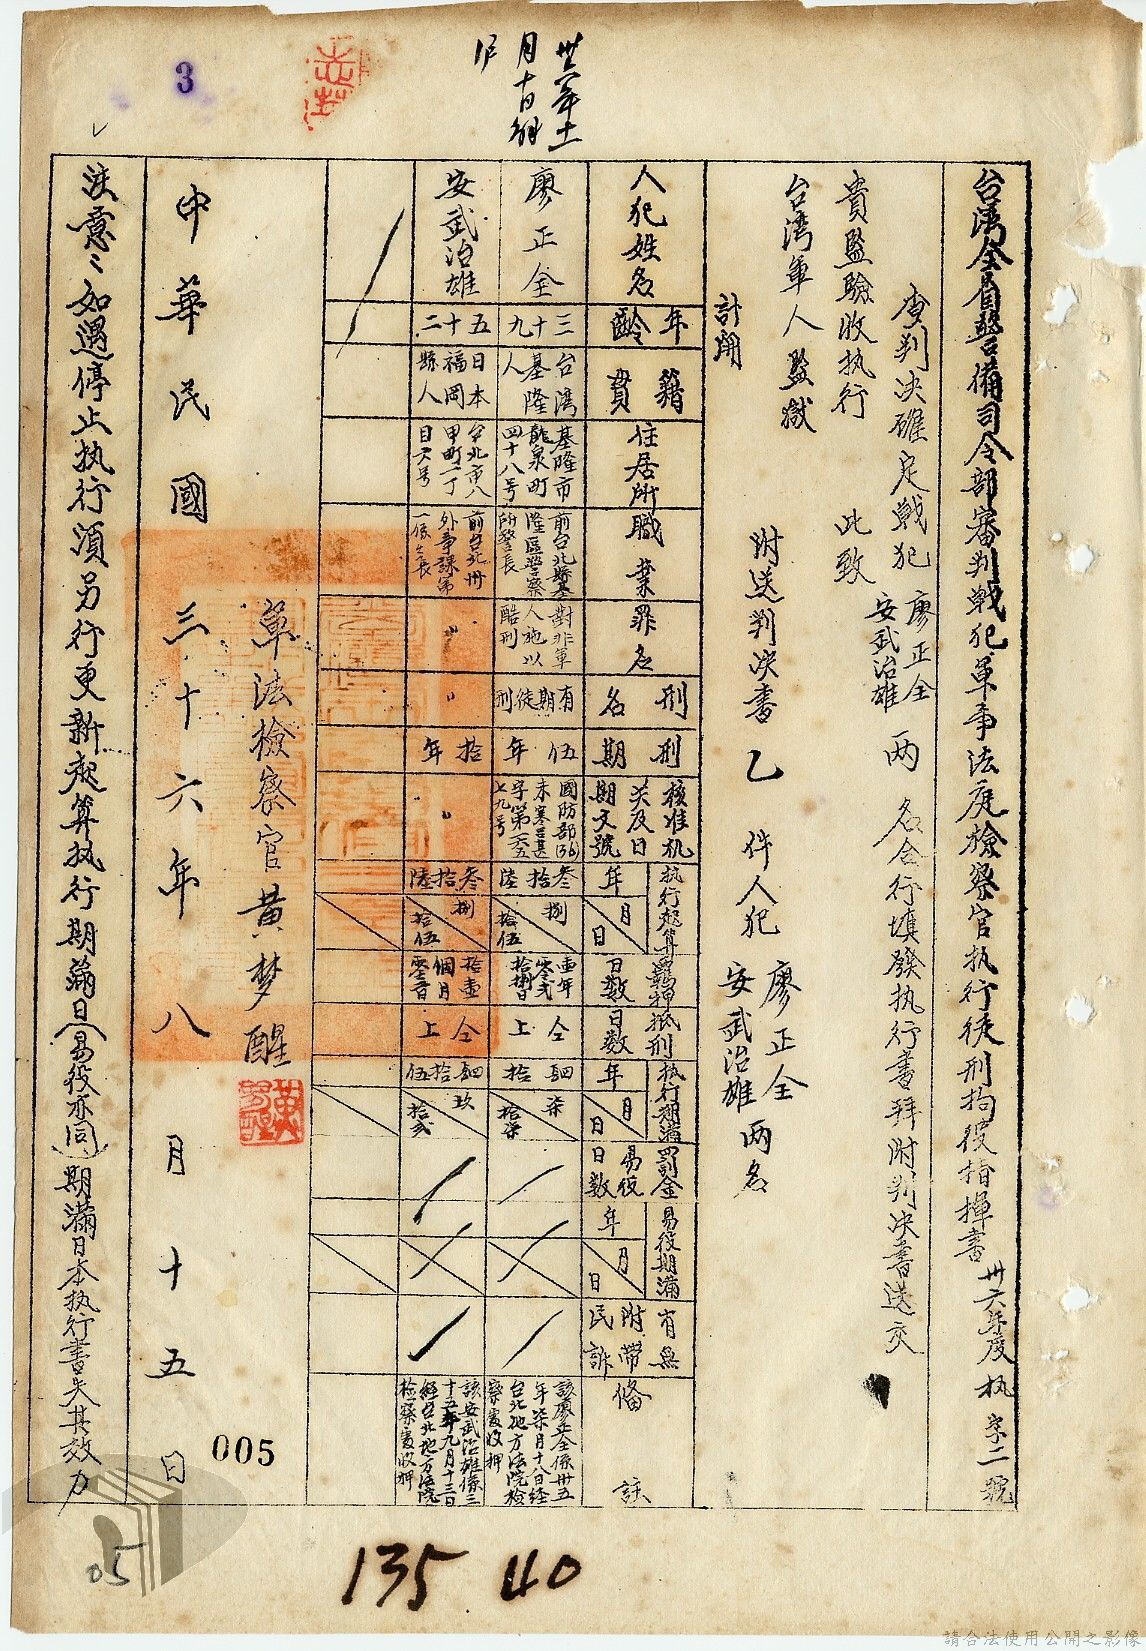 3
卅六年十一
月十日解
台湾全省警備司令部審判戰犯軍事法庭檢察官执行徒刑拘役指揮書 卅六年度执字二號
查判决確定戰犯廖正全 安武治雄 两名合行填發执行書拜附判决書送交
貴監驗收执行 此致
台湾軍人監獄
附送判决書乙件人犯廖正全 安武治雄 两名
計開
人犯姓名
年齡
籍貫
住居所
職業
罪名
刑名
刑期
核准机
关及日
期文號
执行起算
年
月
日
羈押
日數
抵刑
日數
执行期滿
年
月
日
罰金
易役
日數
易役期滿
年
月
日
有無
附帶
民訴
備註
廖正全
三十九
台湾
基隆
人
基隆市
龍泉町
四十八号
前台北縣基
隆區警察
所警長
對非軍
人施以
酷刑
有期徒刑
伍年
國防部(36)
叁拾陸
捌
拾伍
壹年
零弍
拾捌日
仝上
肆拾
柒
拾柒
該廖正全係卅五
年柒月十八日經
台北地方法院檢
察處收押
安武治雄
五十二
日本
福岡
縣人
台北市八
甲町二丁
目六号
前台北州
外事課第
一係長
〃
〃
拾年
〃
叁拾陸
捌
拾伍
拾壹
個月
零弍日
仝上
肆拾伍
玖
拾弍
該安武治雄係三
十五年九月十三日
經台北地方法院
檢察處收押
軍法檢察官黃梦醒
中華民國三十六年八月十五日
注意：如遇停止执行須另行更新起算执行期滿日(易役亦同)期滿日本执行書失其效力
005
05
135 40
請合法使用公開之影像